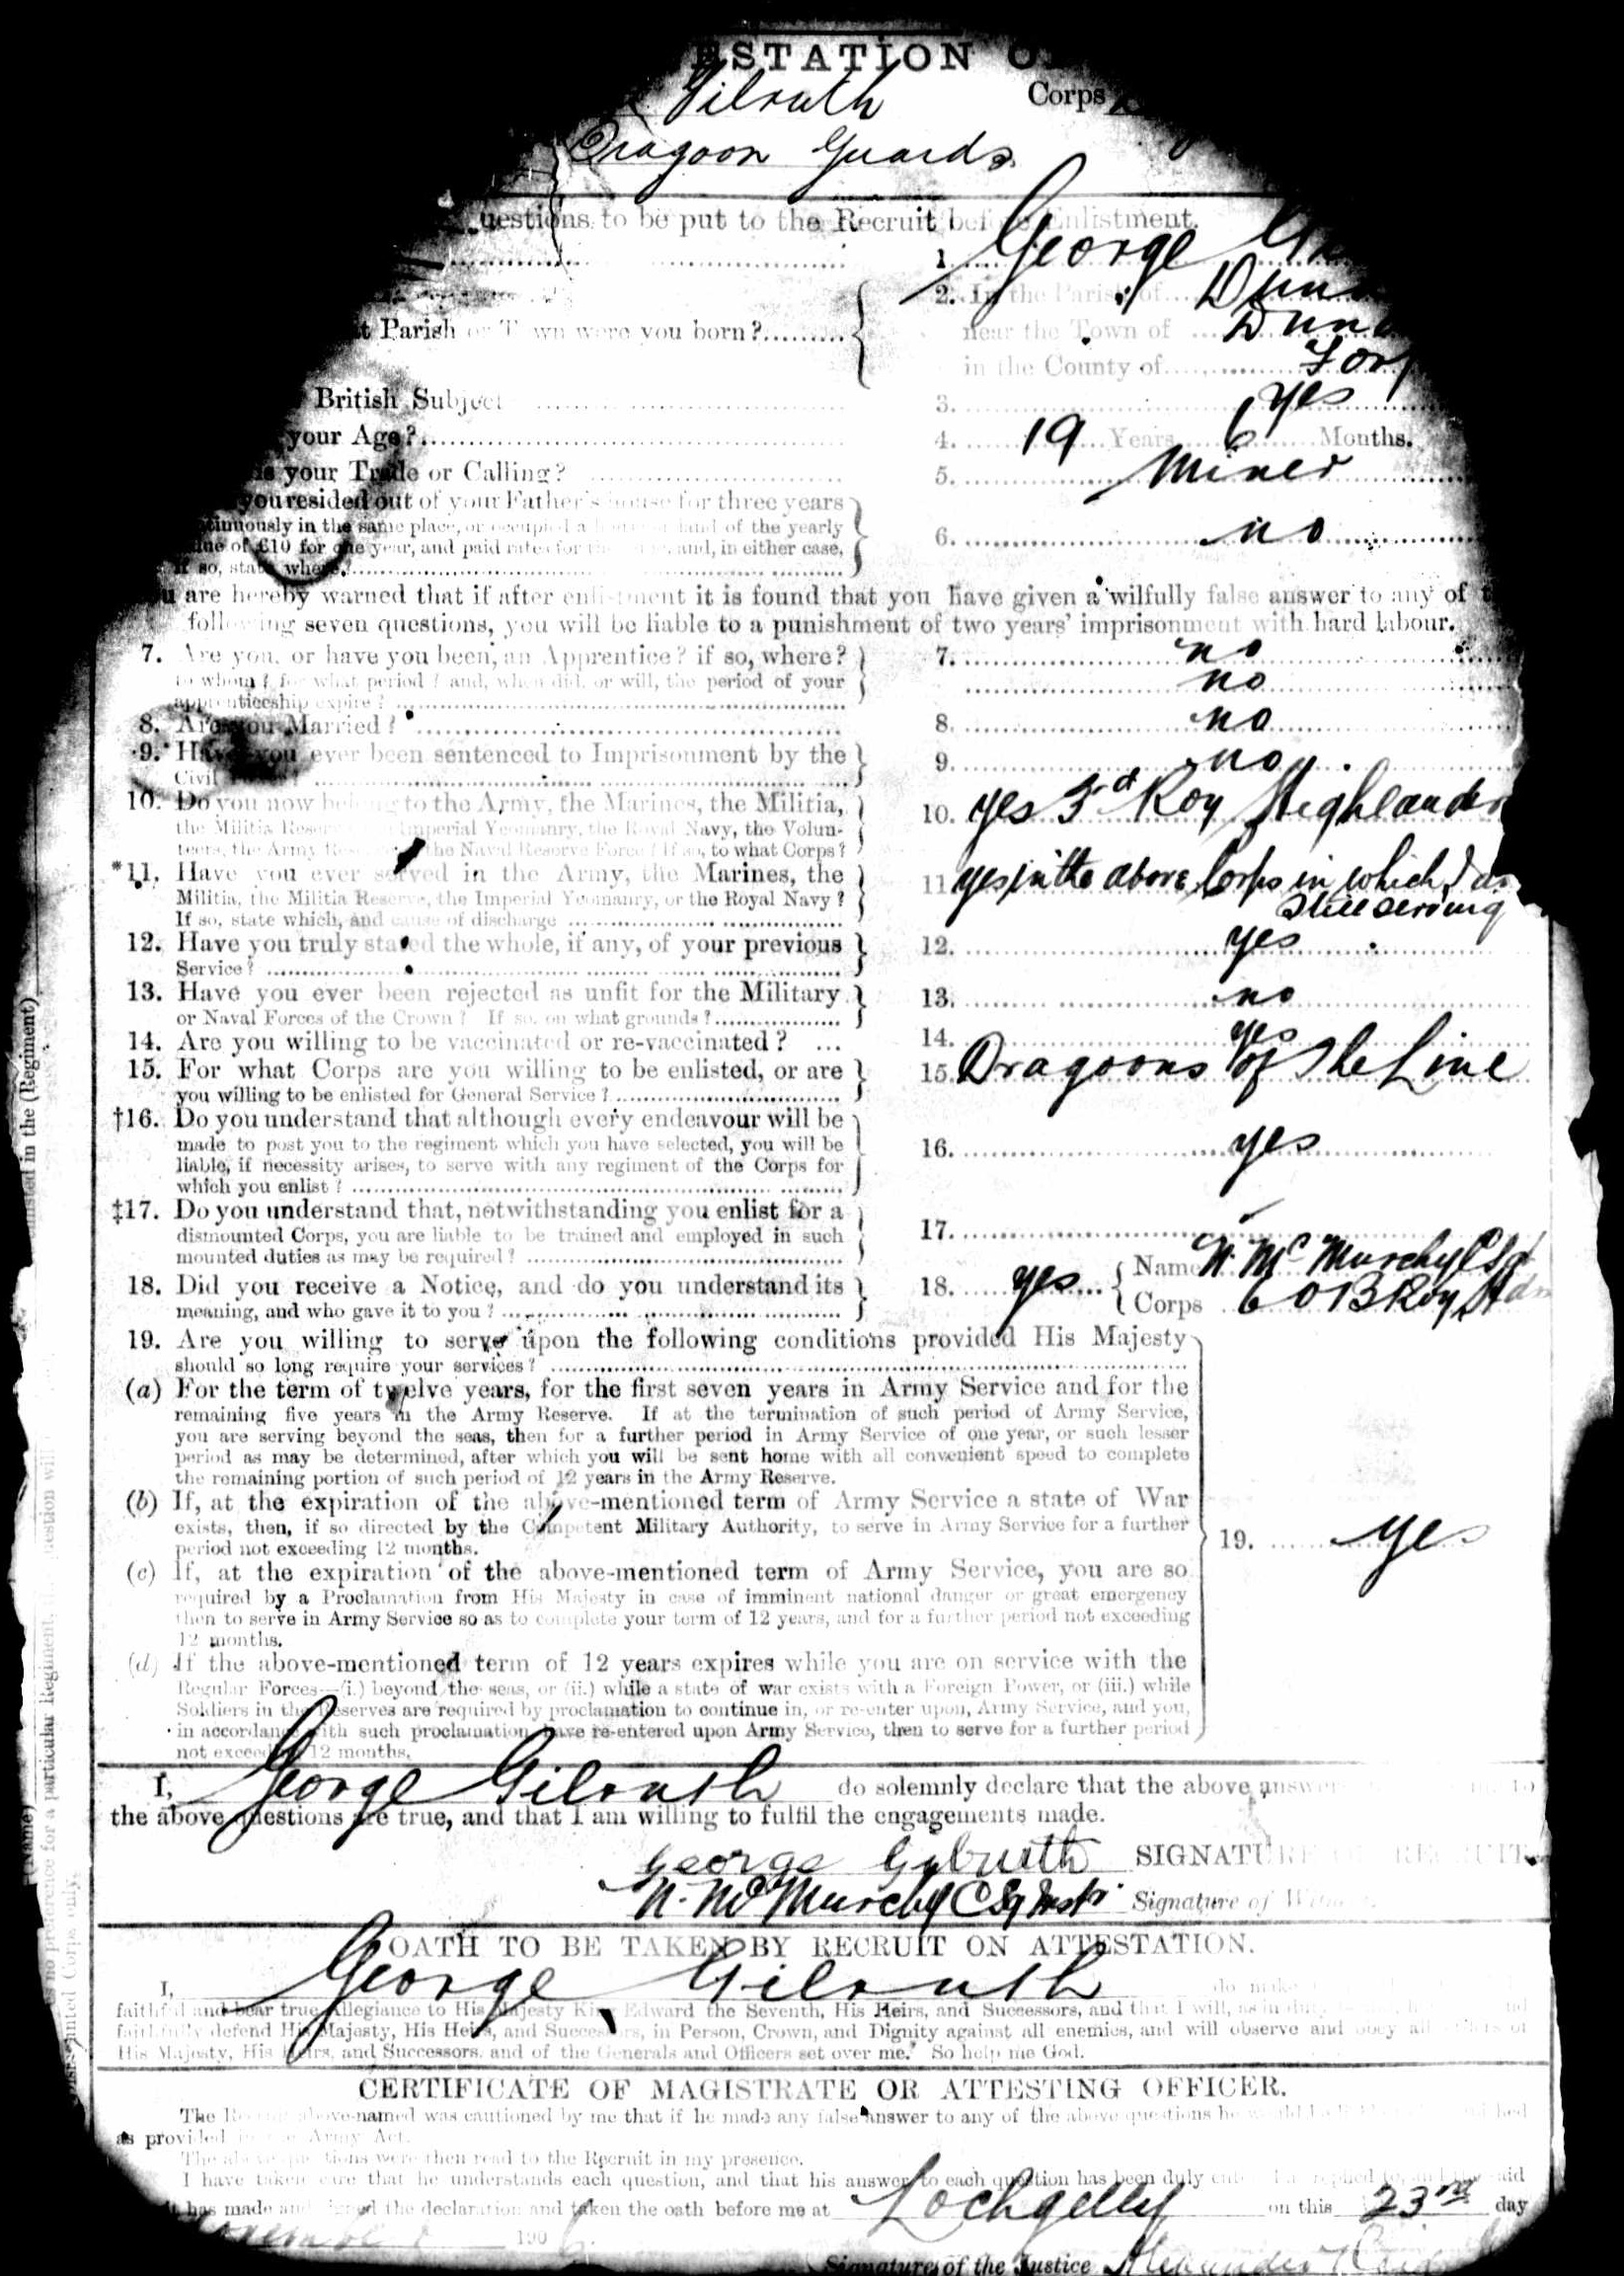 ESTATION O
Gilruth Corps
Dragoon Guards.
uestions to be put to the Recruit before Enlistment.
1. George
2. In the Parish of
t Parish or Town were you born? near the Town of
in the County of
British Subject 3. Yes
your Age? 4. 19 Years 6 Months.
is your Trade or Calling? 5. Miner
you resided out of your Father's house for three years
tinuously in the same place, or occupied a house or land of the yearly
ue of £10 for one year, and paid rates for the same, and, in either case, 6. no
if so, state where?
u are hereby warned that if after enlistment it is found that you have given a wilfully false answer to any of t
following seven questions, you will be liable to a punishment of two years' imprisonment with hard labour.
7. Are you, or have you been, an Apprentice? if so, where? 7. no
to whom? for what period? and, when did, or will, the period of your no
apprenticeship expire?
8. Are you Married? 8. no
9. Have you ever been sentenced to Imprisonment by the 9. no
Civil Power?
10. Do you now belong to the Army, the Marines, the Militia, 10. yes 3rd Roy Highlanders
the Militia Reserve, the Imperial Yeomanry, the Royal Navy, the Volun-
teers, the Army Reserve, the Naval Reserve Force? If so, to what Corps?
*11. Have you ever served in the Army, the Marines, the 11. yes in the above Corps in which I am
Militia, the Militia Reserve, the Imperial Yeomanry, or the Royal Navy? still serving
If so, state which, and cause of discharge
12. Have you truly stated the whole, if any, of your previous 12. yes
Service?
13. Have you ever been rejected as unfit for the Military 13. no
or Naval Forces of the Crown? If so, on what grounds?
14. Are you willing to be vaccinated or re-vaccinated? ... 14. yes
15. For what Corps are you willing to be enlisted, or are 15. Dragoons of the Line
you willing to be enlisted for General Service?
†16. Do you understand that although every endeavour will be
made to post you to the regiment which you have selected, you will be 16. yes
liable, if necessity arises, to serve with any regiment of the Corps for
which you enlist?
‡17. Do you understand that, notwithstanding you enlist for a 17.
dismounted Corps, you are liable to be trained and employed in such
mounted duties as may be required?
18. Did you receive a Notice, and do you understand its 18. yes Name N. McMurchy
meaning, and who gave it to you? Corps
19. Are you willing to serve upon the following conditions provided His Majesty
should so long require your services?
(a) For the term of twelve years, for the first seven years in Army Service and for the
remaining five years in the Army Reserve. If at the termination of such period of Army Service,
you are serving beyond the seas, then for a further period in Army Service of one year, or such lesser
period as may be determined, after which you will be sent home with all convenient speed to complete
the remaining portion of such period of 12 years in the Army Reserve.
(b) If, at the expiration of the above-mentioned term of Army Service a state of War
exists, then, if so directed by the Competent Military Authority, to serve in Army Service for a further
period not exceeding 12 months. 19. yes
(c) If, at the expiration of the above-mentioned term of Army Service, you are so
required by a Proclamation from His Majesty in case of imminent national danger or great emergency
then to serve in Army Service so as to complete your term of 12 years, and for a further period not exceeding
12 months.
(d) If the above-mentioned term of 12 years expires while you are on service with the
Regular Forces—(i.) beyond the seas, or (ii.) while a state of war exists with a Foreign Power, or (iii.) while
Soldiers in the Reserves are required by proclamation to continue in, or re-enter upon, Army Service, and you,
in accordance with such proclamation have re-entered upon Army Service, then to serve for a further period
not exceeding 12 months.
I, George Gilruth do solemnly declare that the above answers to
the above questions are true, and that I am willing to fulfil the engagements made.
George Gilruth SIGNATURE OF RECRUIT.
N. McMurchy Signature of Witness
OATH TO BE TAKEN BY RECRUIT ON ATTESTATION.
I, George Gilruth do make
faithful and bear true Allegiance to His Majesty King Edward the Seventh, His Heirs, and Successors, and that I will, as in duty
faithfully defend His Majesty, His Heirs, and Successors, in Person, Crown, and Dignity against all enemies, and will observe and obey all orders of
His Majesty, His Heirs, and Successors, and of the Generals and Officers set over me. So help me God.
CERTIFICATE OF MAGISTRATE OR ATTESTING OFFICER.
The Recruit above-named was cautioned by me that if he made any false answer to any of the above questions he would be liable to be punished
as provided in the Army Act.
The above questions were then read to the Recruit in my presence.
I have taken care that he understands each question, and that his answer to each question has been duly entered as replied to, and the said
has made and signed the declaration and taken the oath before me at Lochgelly on this 23rd day
190
Signature of the Justice Alexander Reid